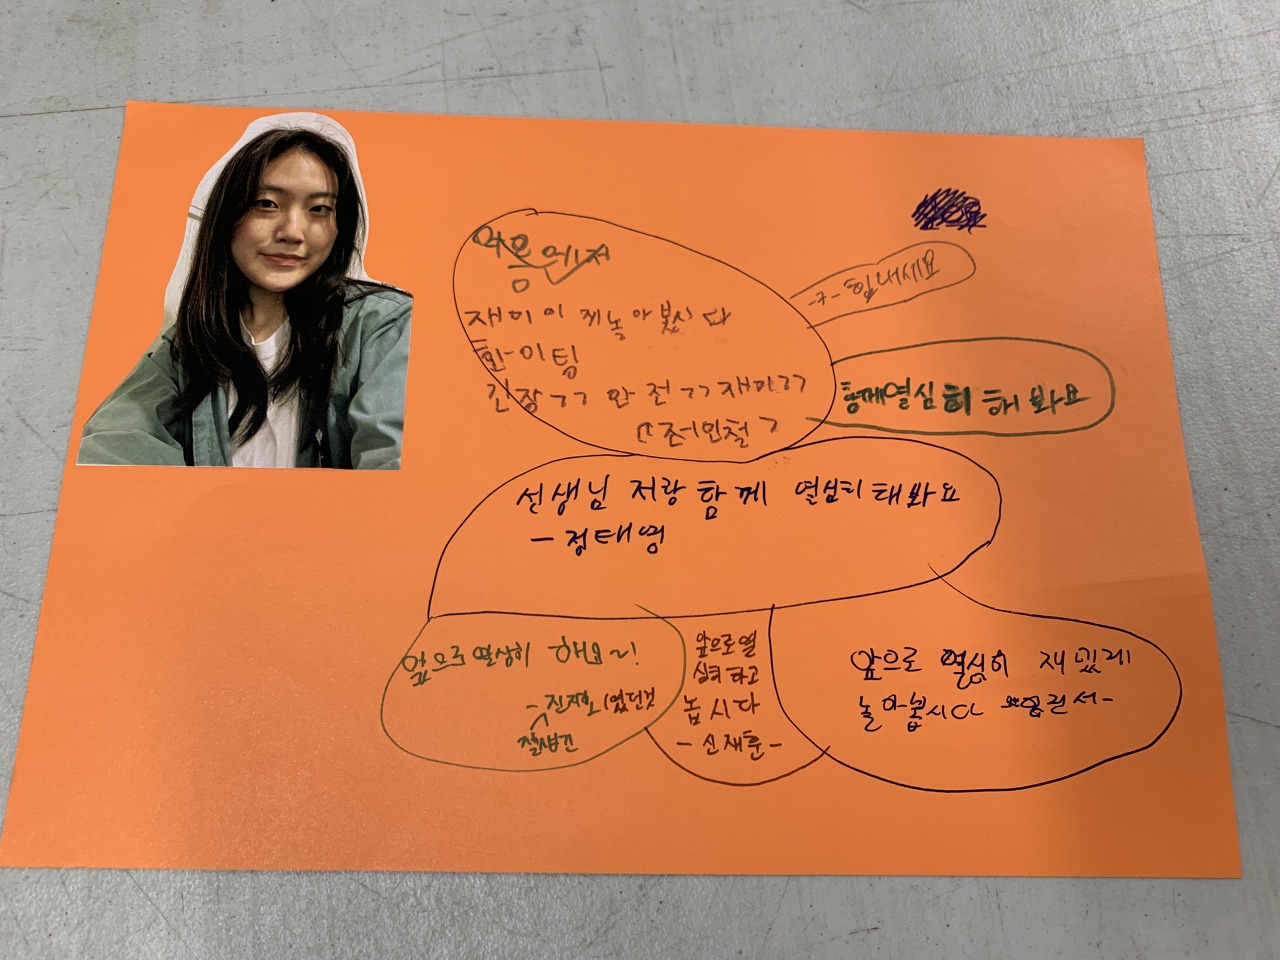 재미이 게놀아봅시다
화이팅
긴장ㄱㄱ 안전ㄱㄱ재미ㄱㄱ
힘내세요
함께열심히 해봐요
선생님 저랑 함께 열심히 해봐요
- 정태영
앞으로 열심히 해요~!
잘생긴
앞으로열
심히 하고
놉시다
- 신재훈 -
앞으로 열심히 재밌게
놀아봅시다